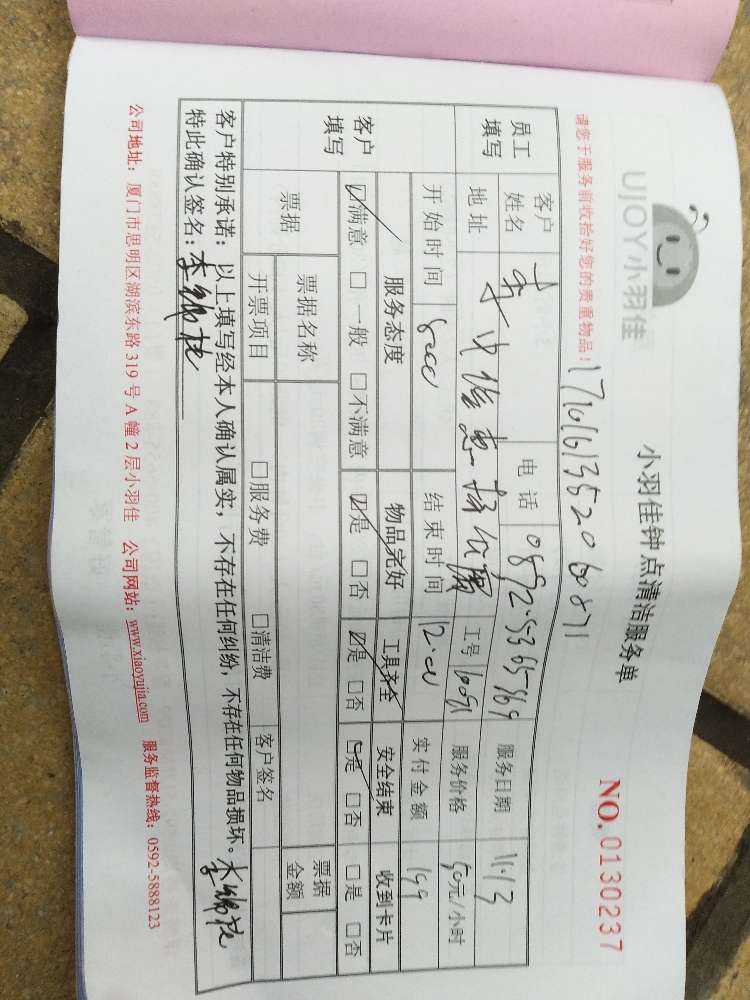 UJOY小羽佳
小羽佳钟点清洁服务单
请您于服务前收拾好您的贵重物品!
NO. 0130237
员工填写 客户姓名 电话 服务日期 11.13
地址 工号 服务价格 50元/小时
开始时间 结束时间 12.00 实付金额 199
客户填写 服务态度 物品完好 工具齐全 安全结束 收到卡片
☑满意 □一般 □不满意 ☑是 □否 ☑是 □否 ☑是 □否 □是 □否
票据 票据名称 票据金额
开票项目 □服务费 □清洁费 客户签名
客户特别承诺:以上填写经本人确认属实,不存在任何纠纷,不存在任何物品损坏。
特此确认签名:
公司地址:厦门市思明区湖滨东路 319 号 A 幢 2 层小羽佳 公司网站:www.xiaoyujia.com 服务监督热线:0592-5888123